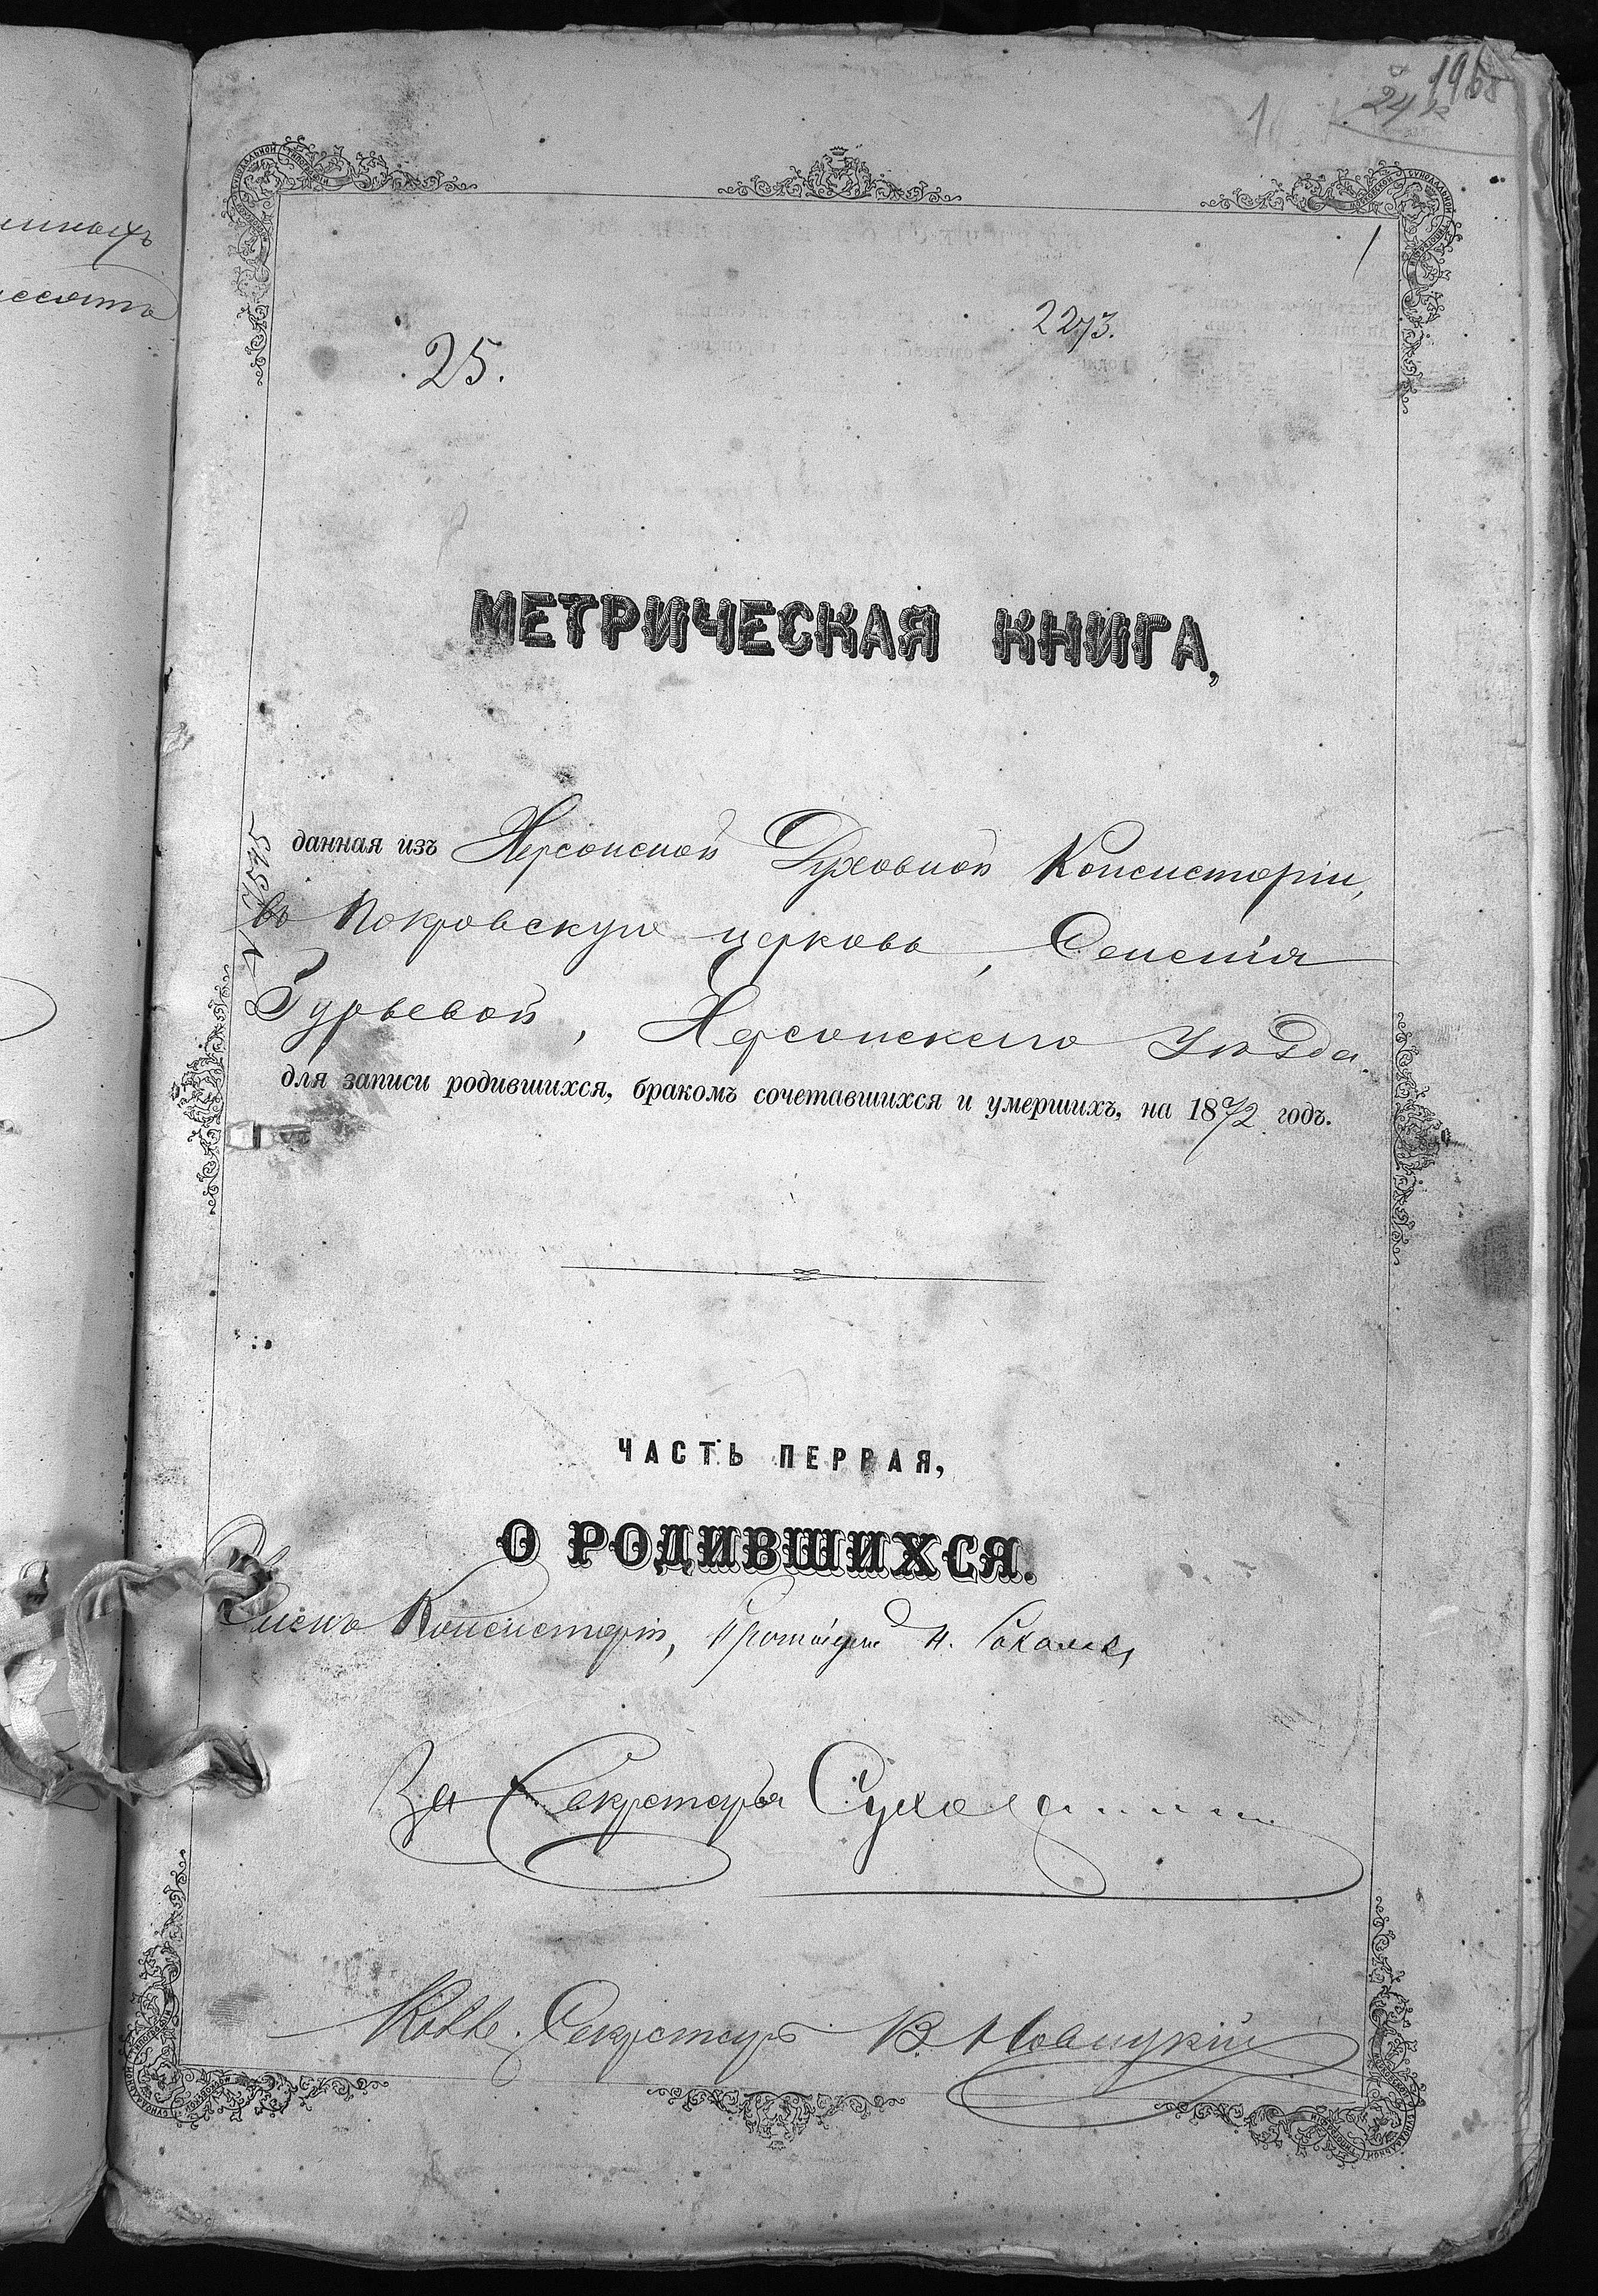 196
24
1
2273.
25.
МЕТРИЧЕСКАЯ КНИГА,
данная изъ Херсонской Духовной Консисторіи,
въ Покровскую церковь, Селенія
Гурьевой, Херсонскаго Уѣзда
для записи родившихся, бракомъ сочетавшихся и умершихъ, на 1872 годъ.
ЧАСТЬ ПЕРВАЯ,
О РОДИВШИХСЯ.
Членъ Консисторіи, Протоіерей
За Секретаря
Секретарь В. Новицкій